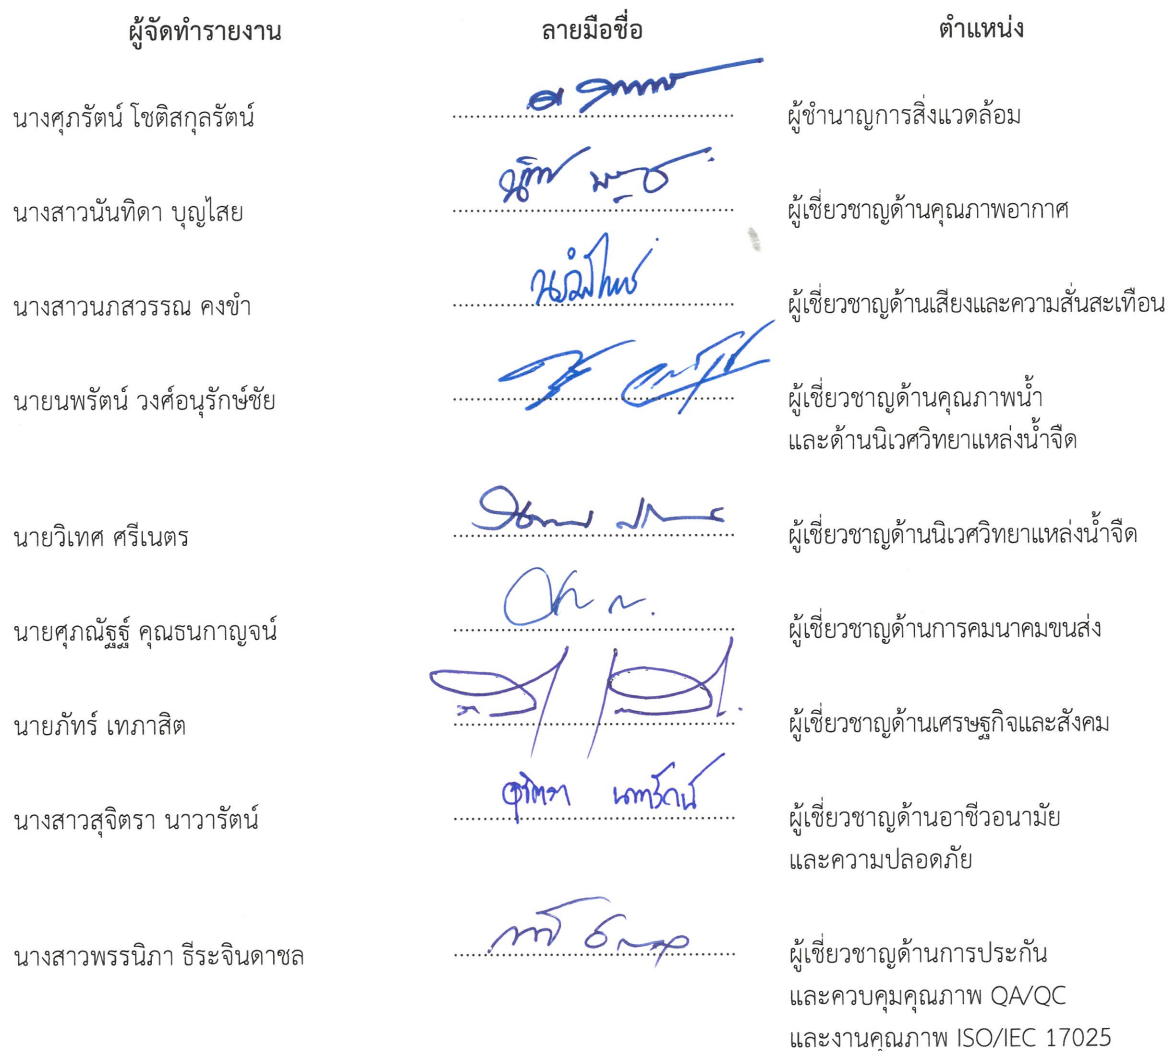 ผู้จัดทำรายงาน ลายมือชื่อ ตำแหน่ง
นางศุภรัตน์ โชติสกุลรัตน์ ผู้ชำนาญการสิ่งแวดล้อม
นางสาวนันทิดา บุญไสย ผู้เชี่ยวชาญด้านคุณภาพอากาศ
นางสาวนภสวรรณ คงขำ ผู้เชี่ยวชาญด้านเสียงและความสั่นสะเทือน
นายนพรัตน์ วงศ์อนุรักษ์ชัย ผู้เชี่ยวชาญด้านคุณภาพน้ำ
และด้านนิเวศวิทยาแหล่งน้ำจืด
นายวิเทศ ศรีเนตร ผู้เชี่ยวชาญด้านนิเวศวิทยาแหล่งน้ำจืด
นายศุภณัฐฐ์ คุณธนกาญจน์ ผู้เชี่ยวชาญด้านการคมนาคมขนส่ง
นายภัทร์ เทภาสิต ผู้เชี่ยวชาญด้านเศรษฐกิจและสังคม
นางสาวสุจิตรา นาวารัตน์ สุจิตรา นาวารัตน์ ผู้เชี่ยวชาญด้านอาชีวอนามัย
และความปลอดภัย
นางสาวพรรนิภา ธีระจินดาชล ผู้เชี่ยวชาญด้านการประกัน
และควบคุมคุณภาพ QA/QC
และงานคุณภาพ ISO/IEC 17025